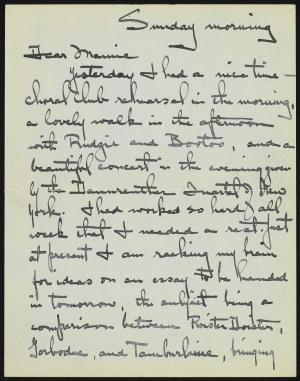 Sunday morning
Dear Mamie
Yesterday I had a nice time –
choral club rehearsal in the morning,
a lovely walk in the afternoon
with Pudgie and Bootoo, and a
beautiful concert in the evening given
by the Dannreuther Quartet of New
York. I had worked so hard all
week that I needed a rest. Just
at present I am racking my brain
for ideas on an essay to be handed
in tomorrow, the subject being a
comparison between Roister Doister,
Gorboduc, and Tamburlaine, bringing